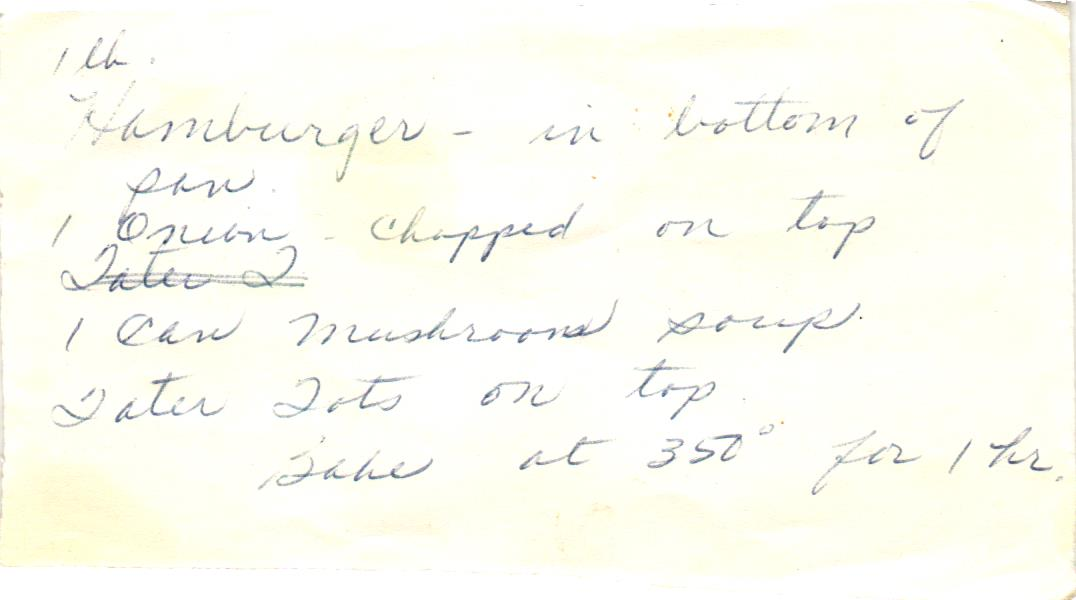 1 lb.
Hamburger - in bottom of
pan.
1 Onion - chopped on top
Tater T
1 Can Mushroom soup.
Tater Tots on top.
Bake at 350° for 1 hr.